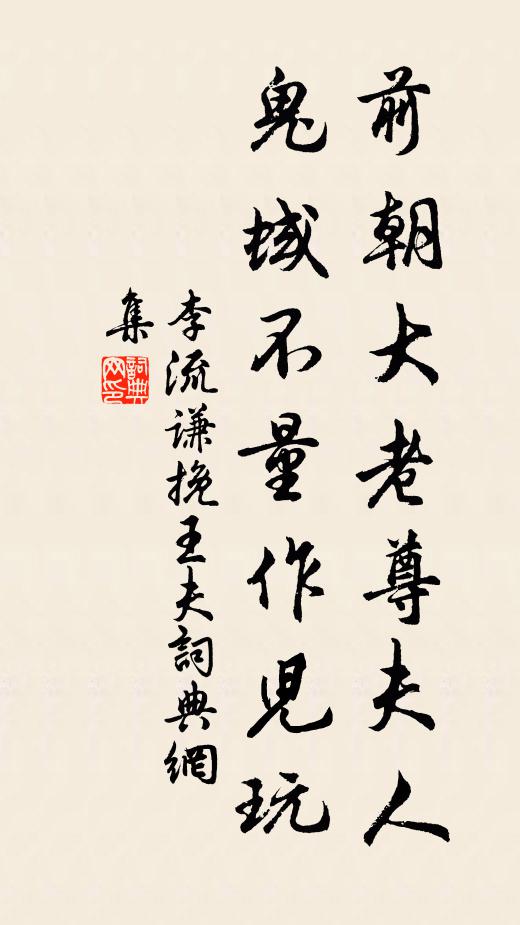 前朝大老尊夫人
鬼域不量作児玩
李流谦挽王夫詞典網
集
詞典
网印